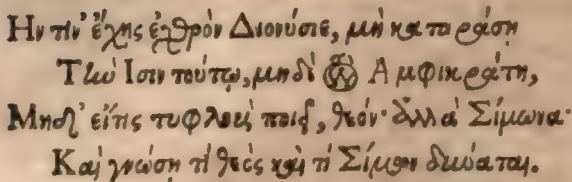 Ην τίν' ἔχης ἐχθρὸν Διονύσιε, μὴ καταράση
Τὴν Ισιν τούτῳ, μηδὲ τὸν Αμφικράτη,
Μηδ' εἴτις τυφλοὺς ποιεῖ, θεόν· ἀλλὰ Σίμωνα·
Καὶ γνώση τί θεὸς καὶ τί Σίμων δύναται.